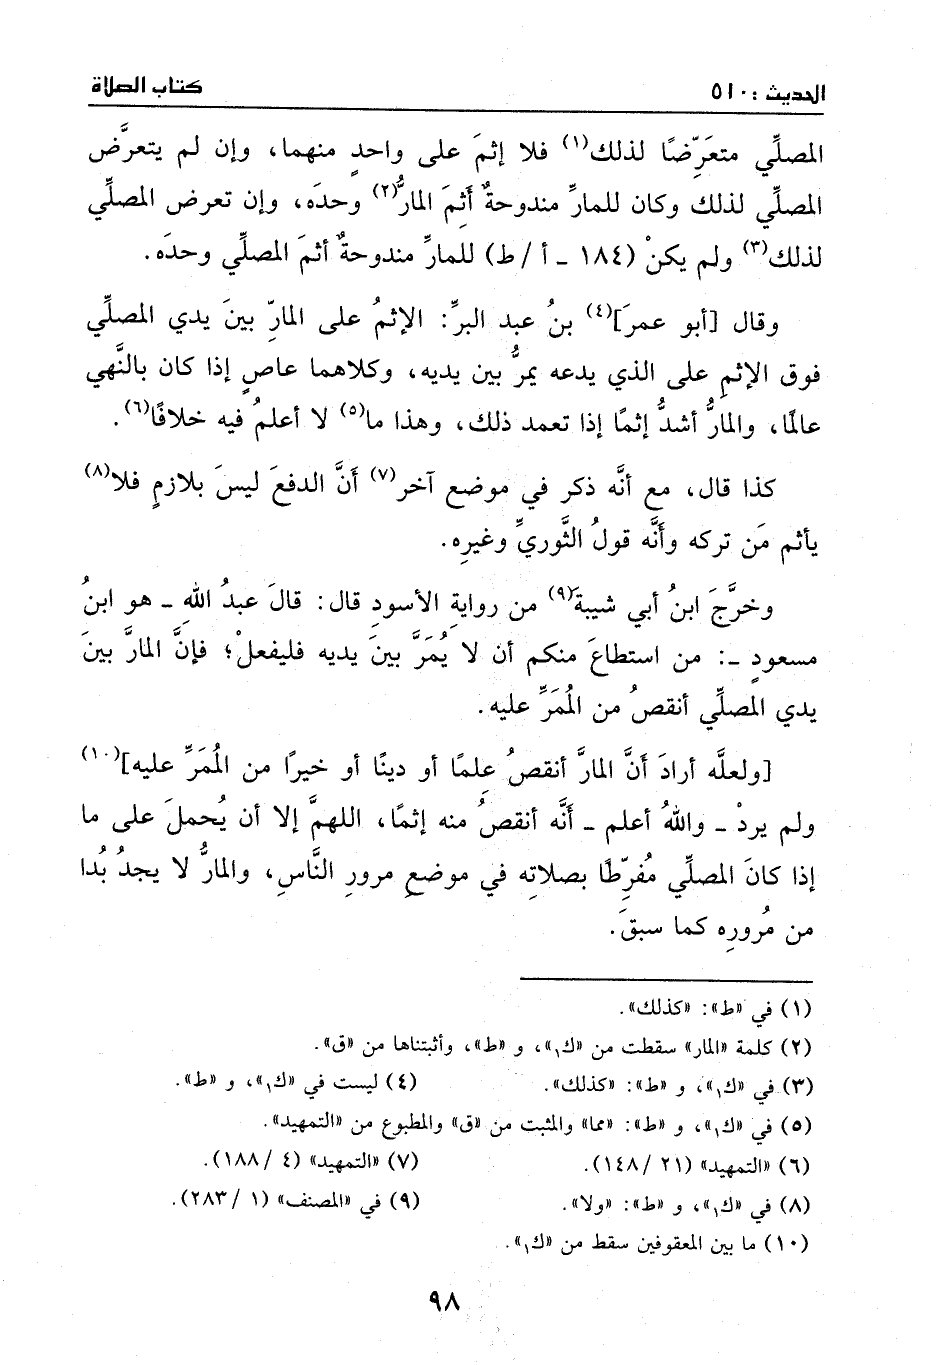 الحديث : ٥١٠ كتاب الصلاة
المصلِّي متعَرِّضًا لذلك(١) فلا إثمَ على واحدٍ منهما، وإن لم يتعرَّض
المصلِّي لذلك وكان للمارِّ مندوحةٌ أَثِمَ المارُّ(٢) وحدَه، وإن تعرض المصلِّي
لذلك(٣) ولم يكنْ (١٨٤ ـ أ / ط) للمارِّ مندوحةٌ أثمَ المصلِّي وحدَه.
وقال [أبو عمرَ](٤) بنُ عبد البرِّ: الإثمُ على المارِّ بينَ يدي المصلِّي
فوق الإثمِ على الذي يدعه يمرُّ بين يديه، وكلاهما عاصٍ إذا كان بالنَّهي
عالمًا، والمارُّ أشدُّ إثمًا إذا تعمد ذلك، وهذا ما(٥) لا أعلمُ فيه خلافًا(٦).
كذا قال، مع أنَّه ذكر في موضع آخر(٧) أَنَّ الدفعَ ليسَ بلازمٍ فلا(٨)
يأثم مَن تركه وأَنَّه قولُ الثَّوريِّ وغيرِه.
وخرَّجَ ابنُ أبي شيبةَ(٩) من روايةِ الأسودِ قال: قالَ عبدُ اللهِ ـ هو ابنُ
مسعودٍ ـ: من استطاعَ منكم أن لا يُمَرَّ بينَ يديه فليفعلْ؛ فإنَّ المارَّ بينَ
يدي المصلِّي أنقصُ من المُمَرِّ عليه.
[ولعلَّه أرادَ أَنَّ المارَّ أنقصُ عِلمًا أو دينًا أو خيرًا من المُمَرِّ عليه](١٠)
ولم يردْ ـ واللهُ أعلم ـ أَنَّه أنقصُ منه إثمًا، اللهمَّ إلا أن يُحملَ على ما
إذا كانَ المصلِّي مُفرِّطًا بصلاتِه في موضعِ مرورِ النَّاسِ، والمارُّ لا يجدُ بُدا
من مُرورِه كما سبقَ.
(١) في «ط»: «كذلك».
(٢) كلمة «المار» سقطت من «ك١»، و «ط»، وأثبتناها من «ق».
(٣) في «ك١»، و «ط»: «كذلك». (٤) ليست في «ك١»، و «ط».
(٥) في «ك١»، و «ط»: «مما» والمثبت من «ق» والمطبوع من «التمهيد».
(٦) «التمهيد» (٢١ /١٤٨). (٧) «التمهيد» (٤ /١٨٨).
(٨) في «ك١»، و «ط»: «ولا». (٩) في «المصنف» (١ /٢٨٣).
(١٠) ما بين المعقوفين سقط من «ك١».
٩٨